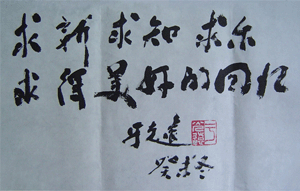 求新 求知 求乐
求得美好的回忆
癸未冬